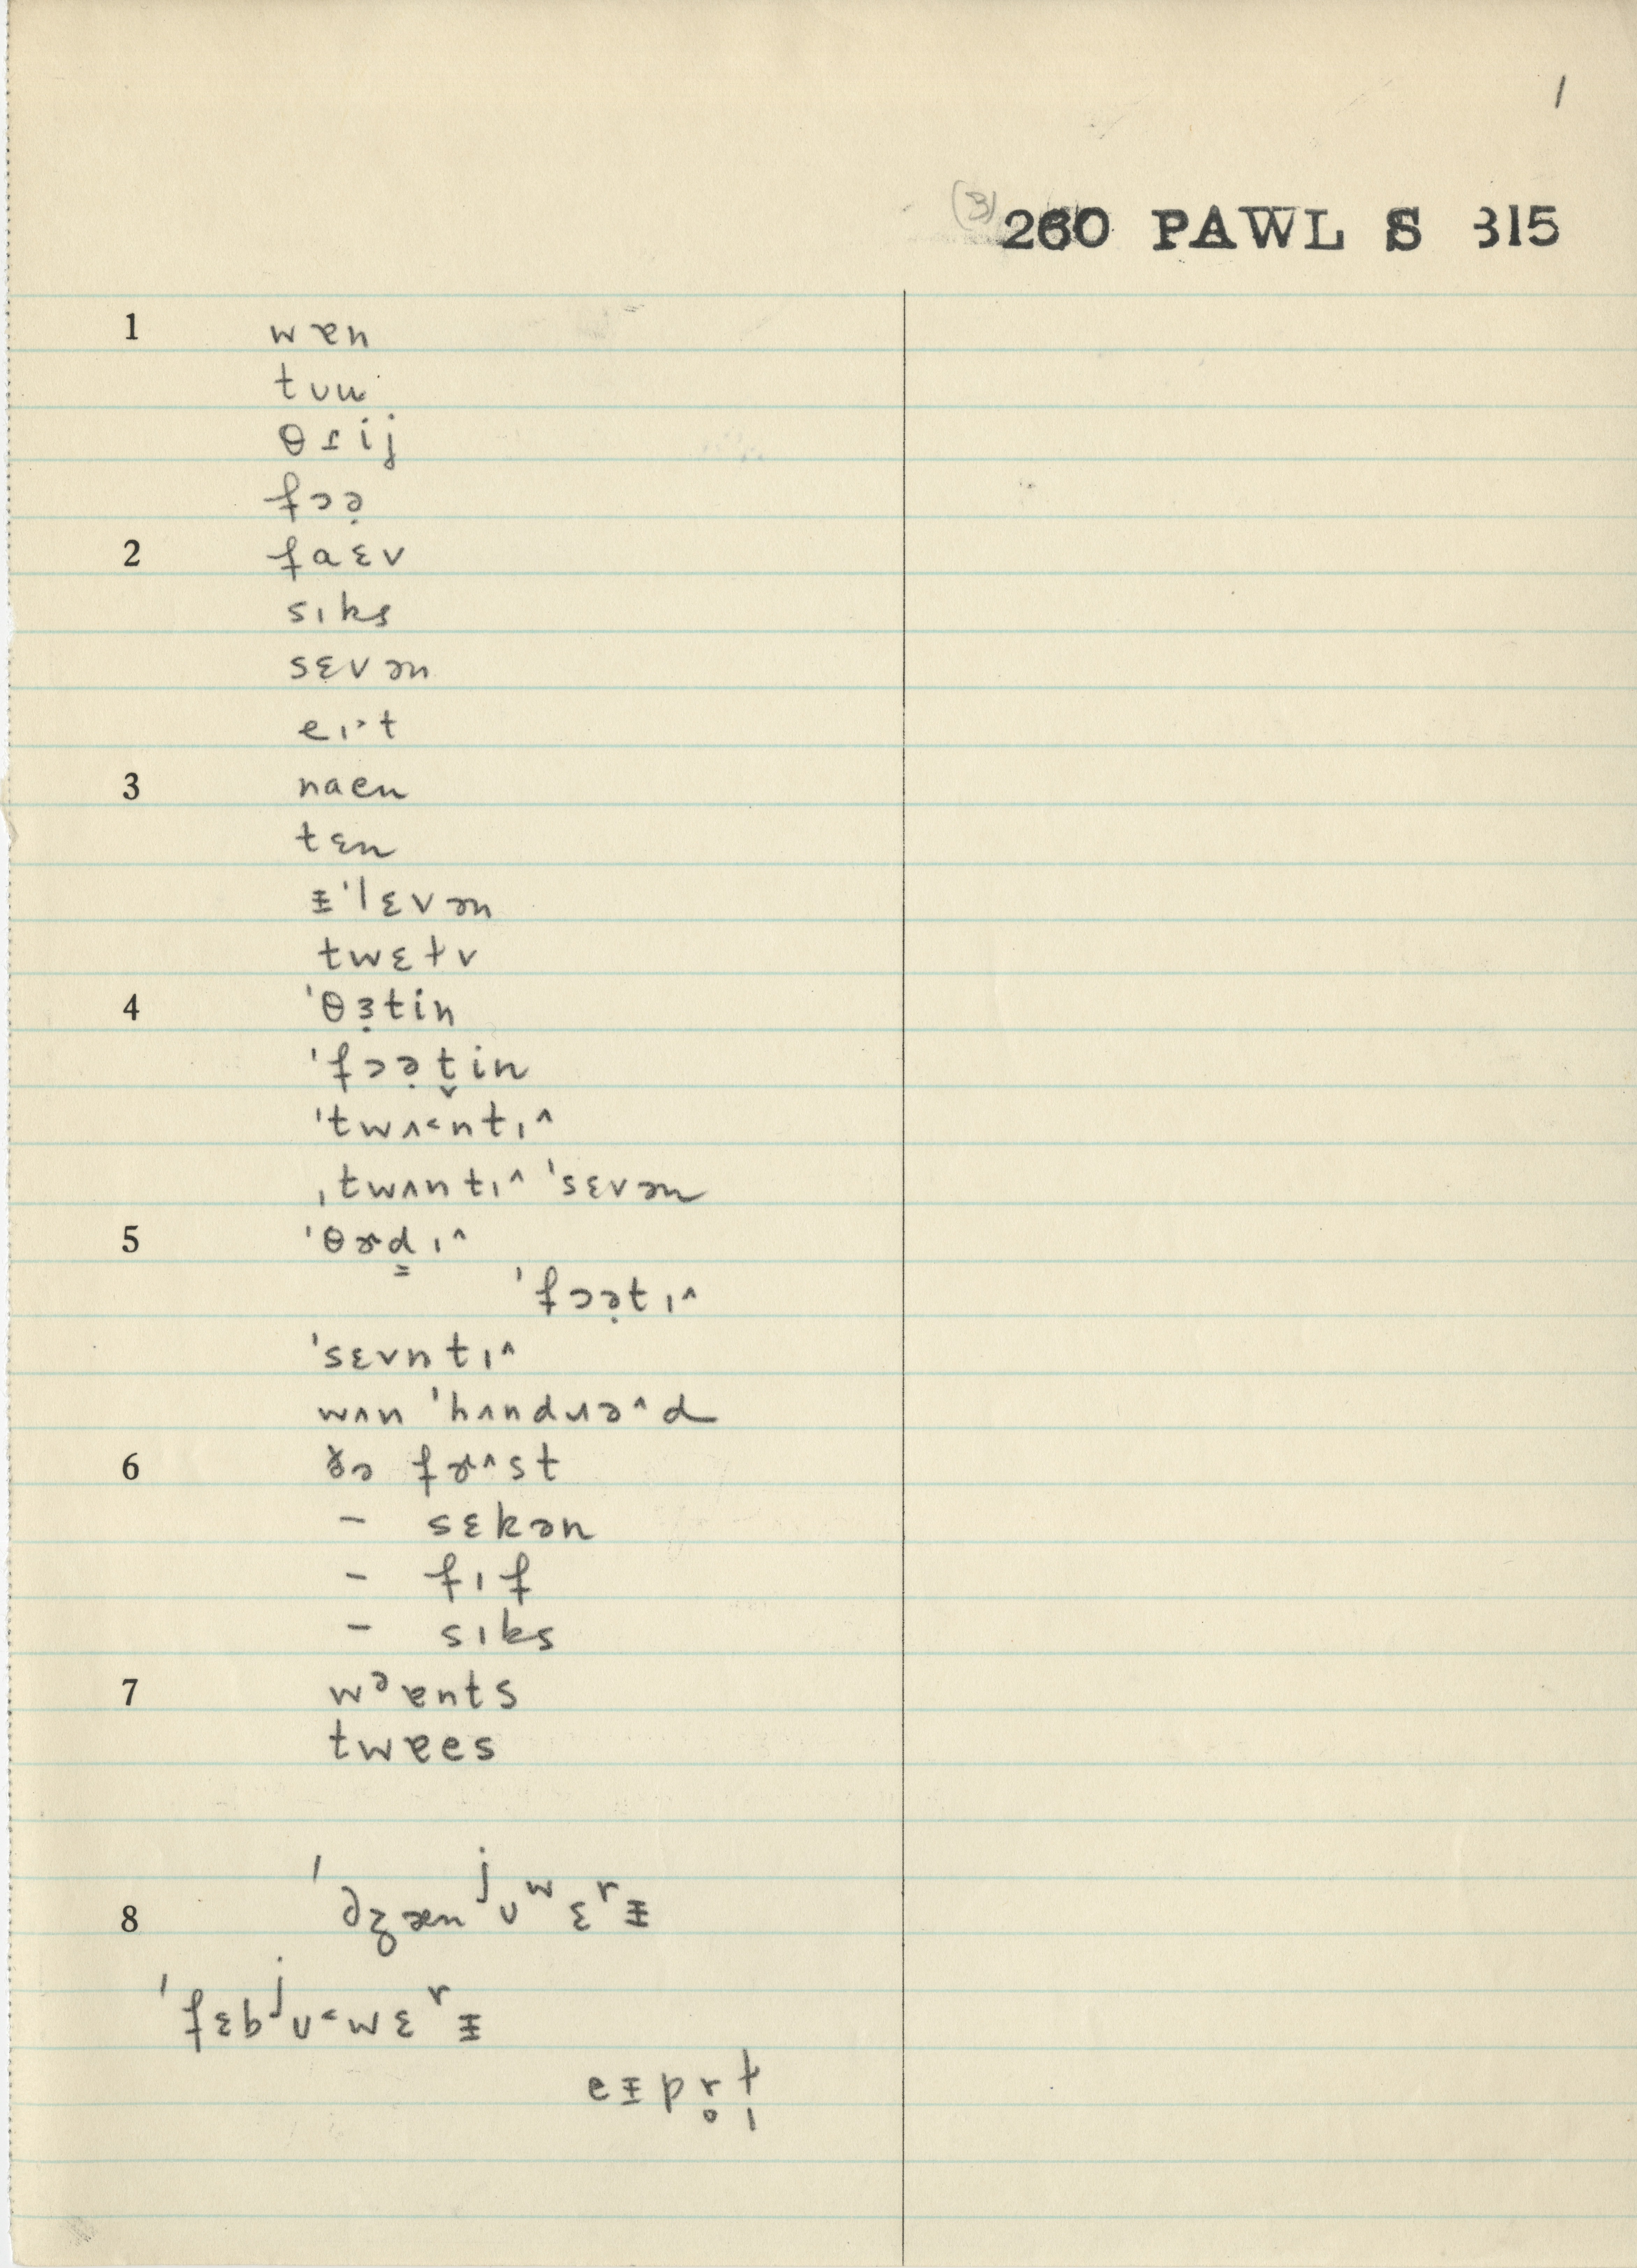 1
(3) 260 PAWL S 315
1 wɐn
tʊu
θɹij
fɔə̣
2 faɛv
sɪks
sɛvən
eɪ˃t
3 naen
tɛn
ᵻˈlɛvən
twɛɫv
4 ˈθɜ̣tin
ˈfɔə̣t̬in
ˈtwʌ˂ntɪ^
ˌtwʌntɪ^ ˈsɛvən
5 ˈθɚd͇ɪ^
ˈfɔə̣tɪ^
ˈsɛvntɪ^
wʌn ˈhʌndɹə^d
6 ðə fɚ^st
– sɛkən
– fɪf
– sɪks
7 wᵊɐnts
twɐes
8 ˈdʒænʲʊʷɛʳᵻ
ˈfɛbʲʊ˂wɛʳᵻ
eᵻpr̥ɫ̩